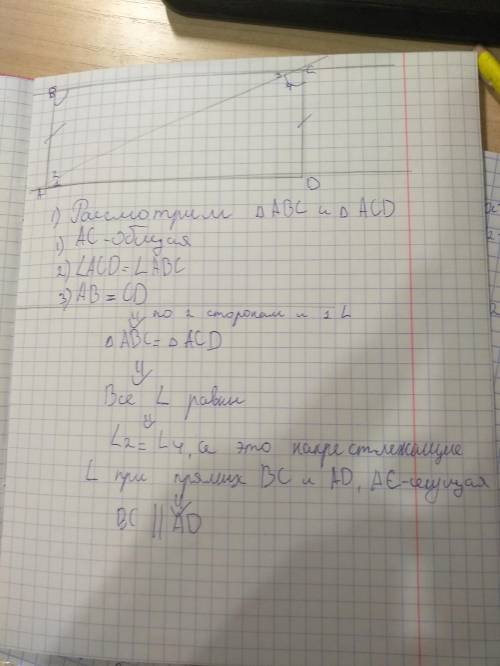 B
C
3
4
1
2
A
D
1) Рассмотрим △ABC и △ACD
1) AC-общая
2) ∠ACD = ∠ABC
3) AB = CD
⇓ по 2 сторонам и 1 ∠
△ABC = △ACD
⇓
Все ∠ равны
⇓
∠2 = ∠4, а это накрест лежащие
∠ при прямих BC и AD, AC-секущая
⇓
BC || AD